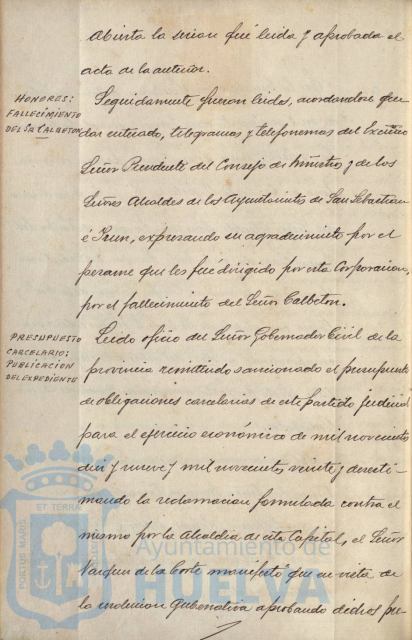 Abierta la sesion fué leida y aprobada el
acta de la anterior.
HONORES:
FALLECIMIENTO
DEL Sr CALBETON
Seguidamente fueron leidos, acordandose que-
dar enterado, telegramas y telefonemas del Excmo
Señor Presidente del Consejo de Ministros y de los
Señores Alcaldes de los Ayuntamientos de San Sebastian
é Irun, expresando su agradecimiento por el
pesame que les fué dirigido por esta Corporacion,
por el fallecimiento del Señor Calbeton.
PRESUPUESTO
CARCELARIO:
PUBLICACION
DEL EXPEDIENTE
Leido oficio del Señor Gobernador Civil de la
provincia remitiendo sancionado el presupuesto
de obligaciones carcelarias de este partido judicial
para el ejercicio económico de mil novecientos
diez y nueve y mil novecientos veinte y desesti-
mando la reclamacion formulada contra el
mismo por la Alcaldia de esta Capital, el Señor
Vazquez de la Corte manifestó que en vista de
la resolucion gubernativa aprobando dichos pre-
PORTUS MARIS
ET TERRA
Ayuntamiento de
HUELVA